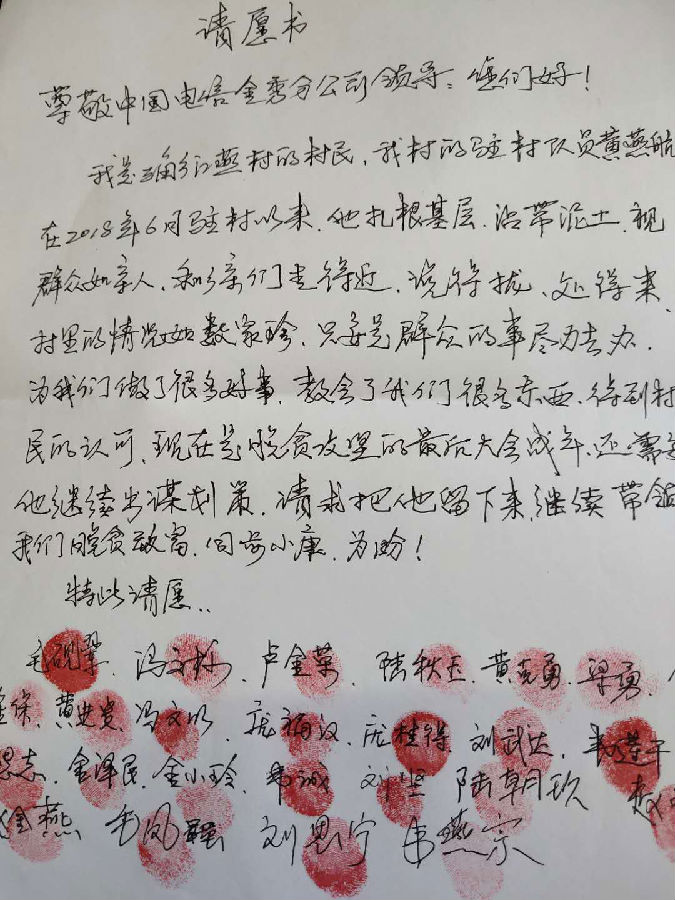 请愿书
尊敬中国电信金秀分公司领导：您们好！
我是三角乡江燕村的村民，我村的驻村队员黄燕航
在2018年6月驻村以来，他扎根基层，沾带泥土，视
群众如亲人，和乡亲们走得近，说得拢、处得来，
村里的情况如数家珍，只要是群众的事尽力去办，
为我们做了很多好事，教会了我们很多东西，得到村
民的认可，现在是脱贫攻坚的最后大会战年，还需要
他继续出谋划策，请求把他留下来，继续带领
我们脱贫致富，同步小康，为盼！
特此请愿..
冯 卢金 陆秋玉 黄克勇 梁勇
黄 冯文 庞福汉 庞桂得 刘武达
志 金泽民 金小玲 韦诚 刘坚 陆
金燕 毛凤 刘思宁 韦燕宗